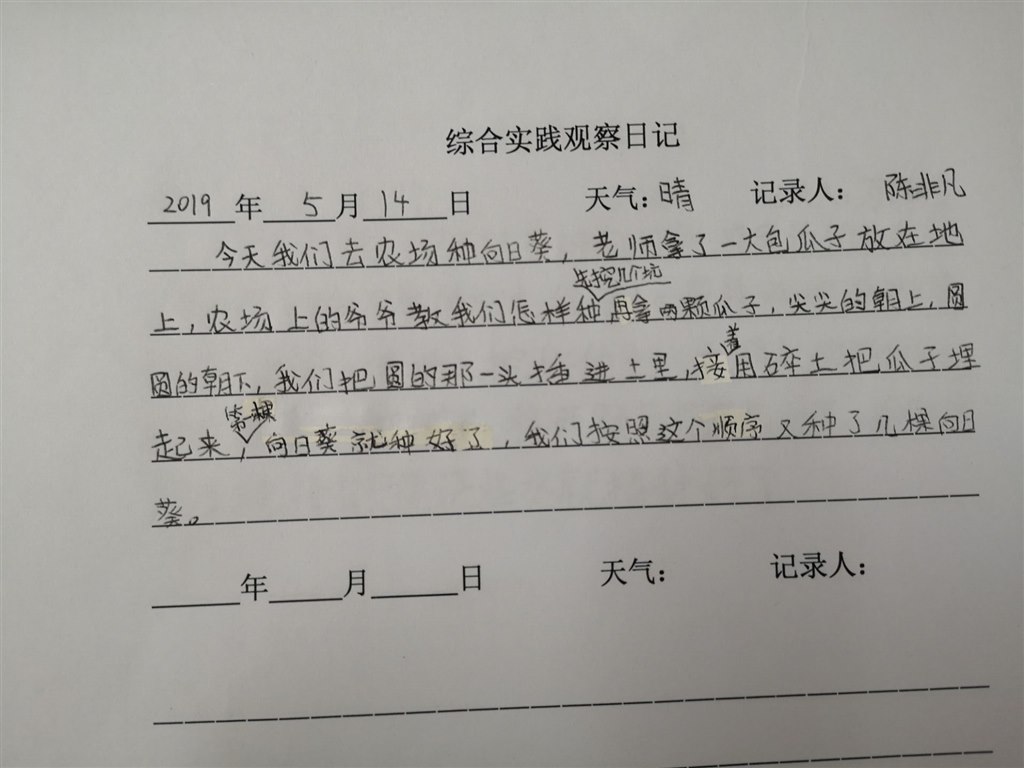 综合实践观察日记
2019年 5月14日 天气:晴 记录人: 陈非凡
今天我们去农场种向日葵,老师拿了一大包瓜子放在地
先挖几个坑
上,农场上的爷爷教我们怎样种再拿两颗瓜子,尖尖的朝上,圆
圆的朝下,我们把圆的那一头插进土里,接着用碎土把瓜子埋
第一棵
起来,向日葵就种好了,我们按照这个顺序又种了几棵向日
葵。
年 月 日 天气: 记录人: